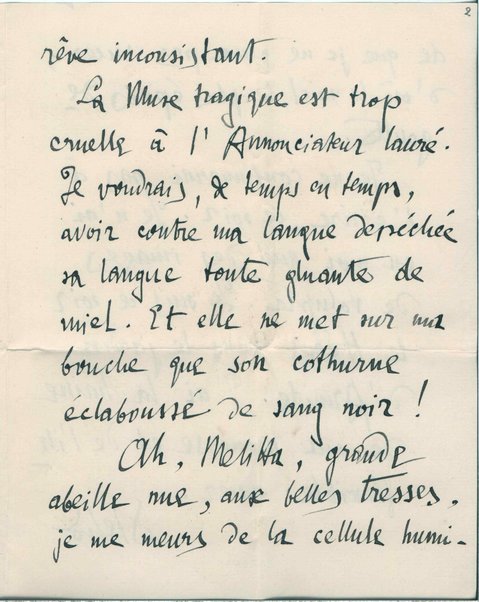 2
rêve inconsistant.
La Muse tragique est trop
cruelle à l'Annonciateur lauré.
Je voudrais, de temps en temps,
avoir contre ma langue desséchée
sa langue toute gluante de
miel. Et elle ne met sur ma
bouche que son cothurne
éclaboussé de sang noir !
Ah, Melitta, grande
abeille nue, aux belles tresses,
je me meurs de la cellule humi-